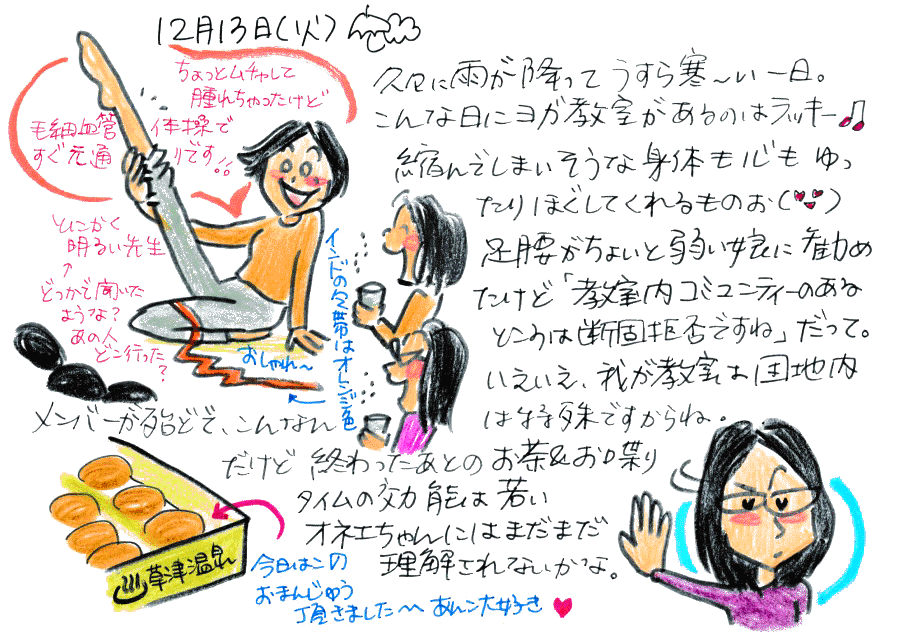 12月13日(火)
ちょっとムチャして
腫れちゃったけど
毛細血管 体操で
すぐ元通りです!!
久々に雨が降って うすら寒〜い一日。
こんな日にヨガ教室があるのはラッキー♫
縮んでしまいそうな身体も心も ゆっ
たりほぐしてくれるものお(♥♥)
足腰がちょいと弱い娘に勧め
たけど「教室内コミュニティーのある
ところは断固拒否ですね」だって。
いえいえ、我が教室は団地内
は特殊ですからね。
とにかく
明るい先生
↑
どっかで聞いた
ような?
あの人
どこ行った?
インドの受帯はオレンジ色
おしゃれ〜
メンバーが殆どで、こんなん
だけど 終わったあとの お茶&お喋り
タイムの効能は若い
オネエちゃんにはまだまだ
理解されないかな。
草津温泉
今日はこの
おまんじゅう
頂きました〜 あんこ大好き♥